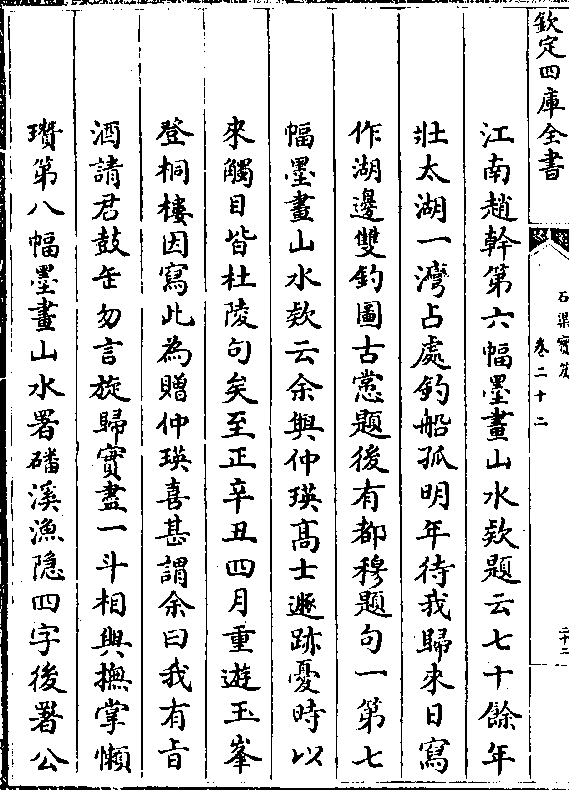 欽定四庫全書
石渠寶笈
卷二十二
二十二
江南趙幹第六幅墨畫山水欵題云七十餘年
壯太湖一灣占處釣船孤明年待我歸來日寫
作湖邊雙釣圖古憃題後有都穆題句一第七
幅墨畫山水欵云余與仲瑛髙士遯跡憂時以
來觸目皆杜陵句矣至正辛丑四月重遊玉峯
登桐樓因寫此為贈仲瑛喜甚謂余曰我有㫖
酒請君鼓缶勿言旋歸實盡一斗相與撫掌懶
瓚第八幅墨畫山水署磻溪漁隱四字後署公